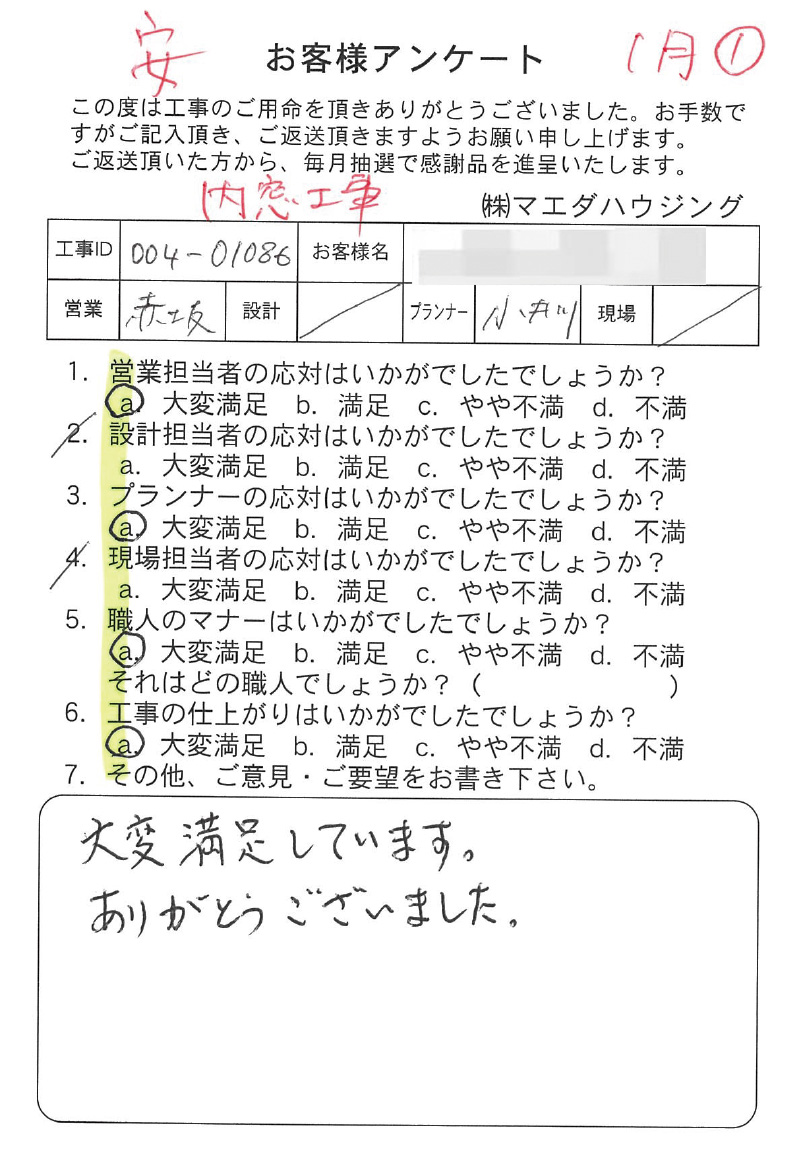 安 お客様アンケート 1月①
この度は工事のご用命を頂きありがとうございました。お手数で
すがご記入頂き、ご返送頂きますようお願い申し上げます。
ご返送頂いた方から、毎月抽選で感謝品を進呈いたします。
内窓工事 ㈱マエダハウジング
工事ID 004-01086 お客様名
営業 赤坂 設計 プランナー 小井川 現場
1. 営業担当者の応対はいかがでしたでしょうか？
a. 大変満足 b. 満足 c. やや不満 d. 不満
2. 設計担当者の応対はいかがでしたでしょうか？
a. 大変満足 b. 満足 c. やや不満 d. 不満
3. プランナーの応対はいかがでしたでしょうか？
a. 大変満足 b. 満足 c. やや不満 d. 不満
4. 現場担当者の応対はいかがでしたでしょうか？
a. 大変満足 b. 満足 c. やや不満 d. 不満
5. 職人のマナーはいかがでしたでしょうか？
a. 大変満足 b. 満足 c. やや不満 d. 不満
それはどの職人でしょうか？（ ）
6. 工事の仕上がりはいかがでしたでしょうか？
a. 大変満足 b. 満足 c. やや不満 d. 不満
7. その他、ご意見・ご要望をお書き下さい。
大変満足しています。
ありがとうございました。